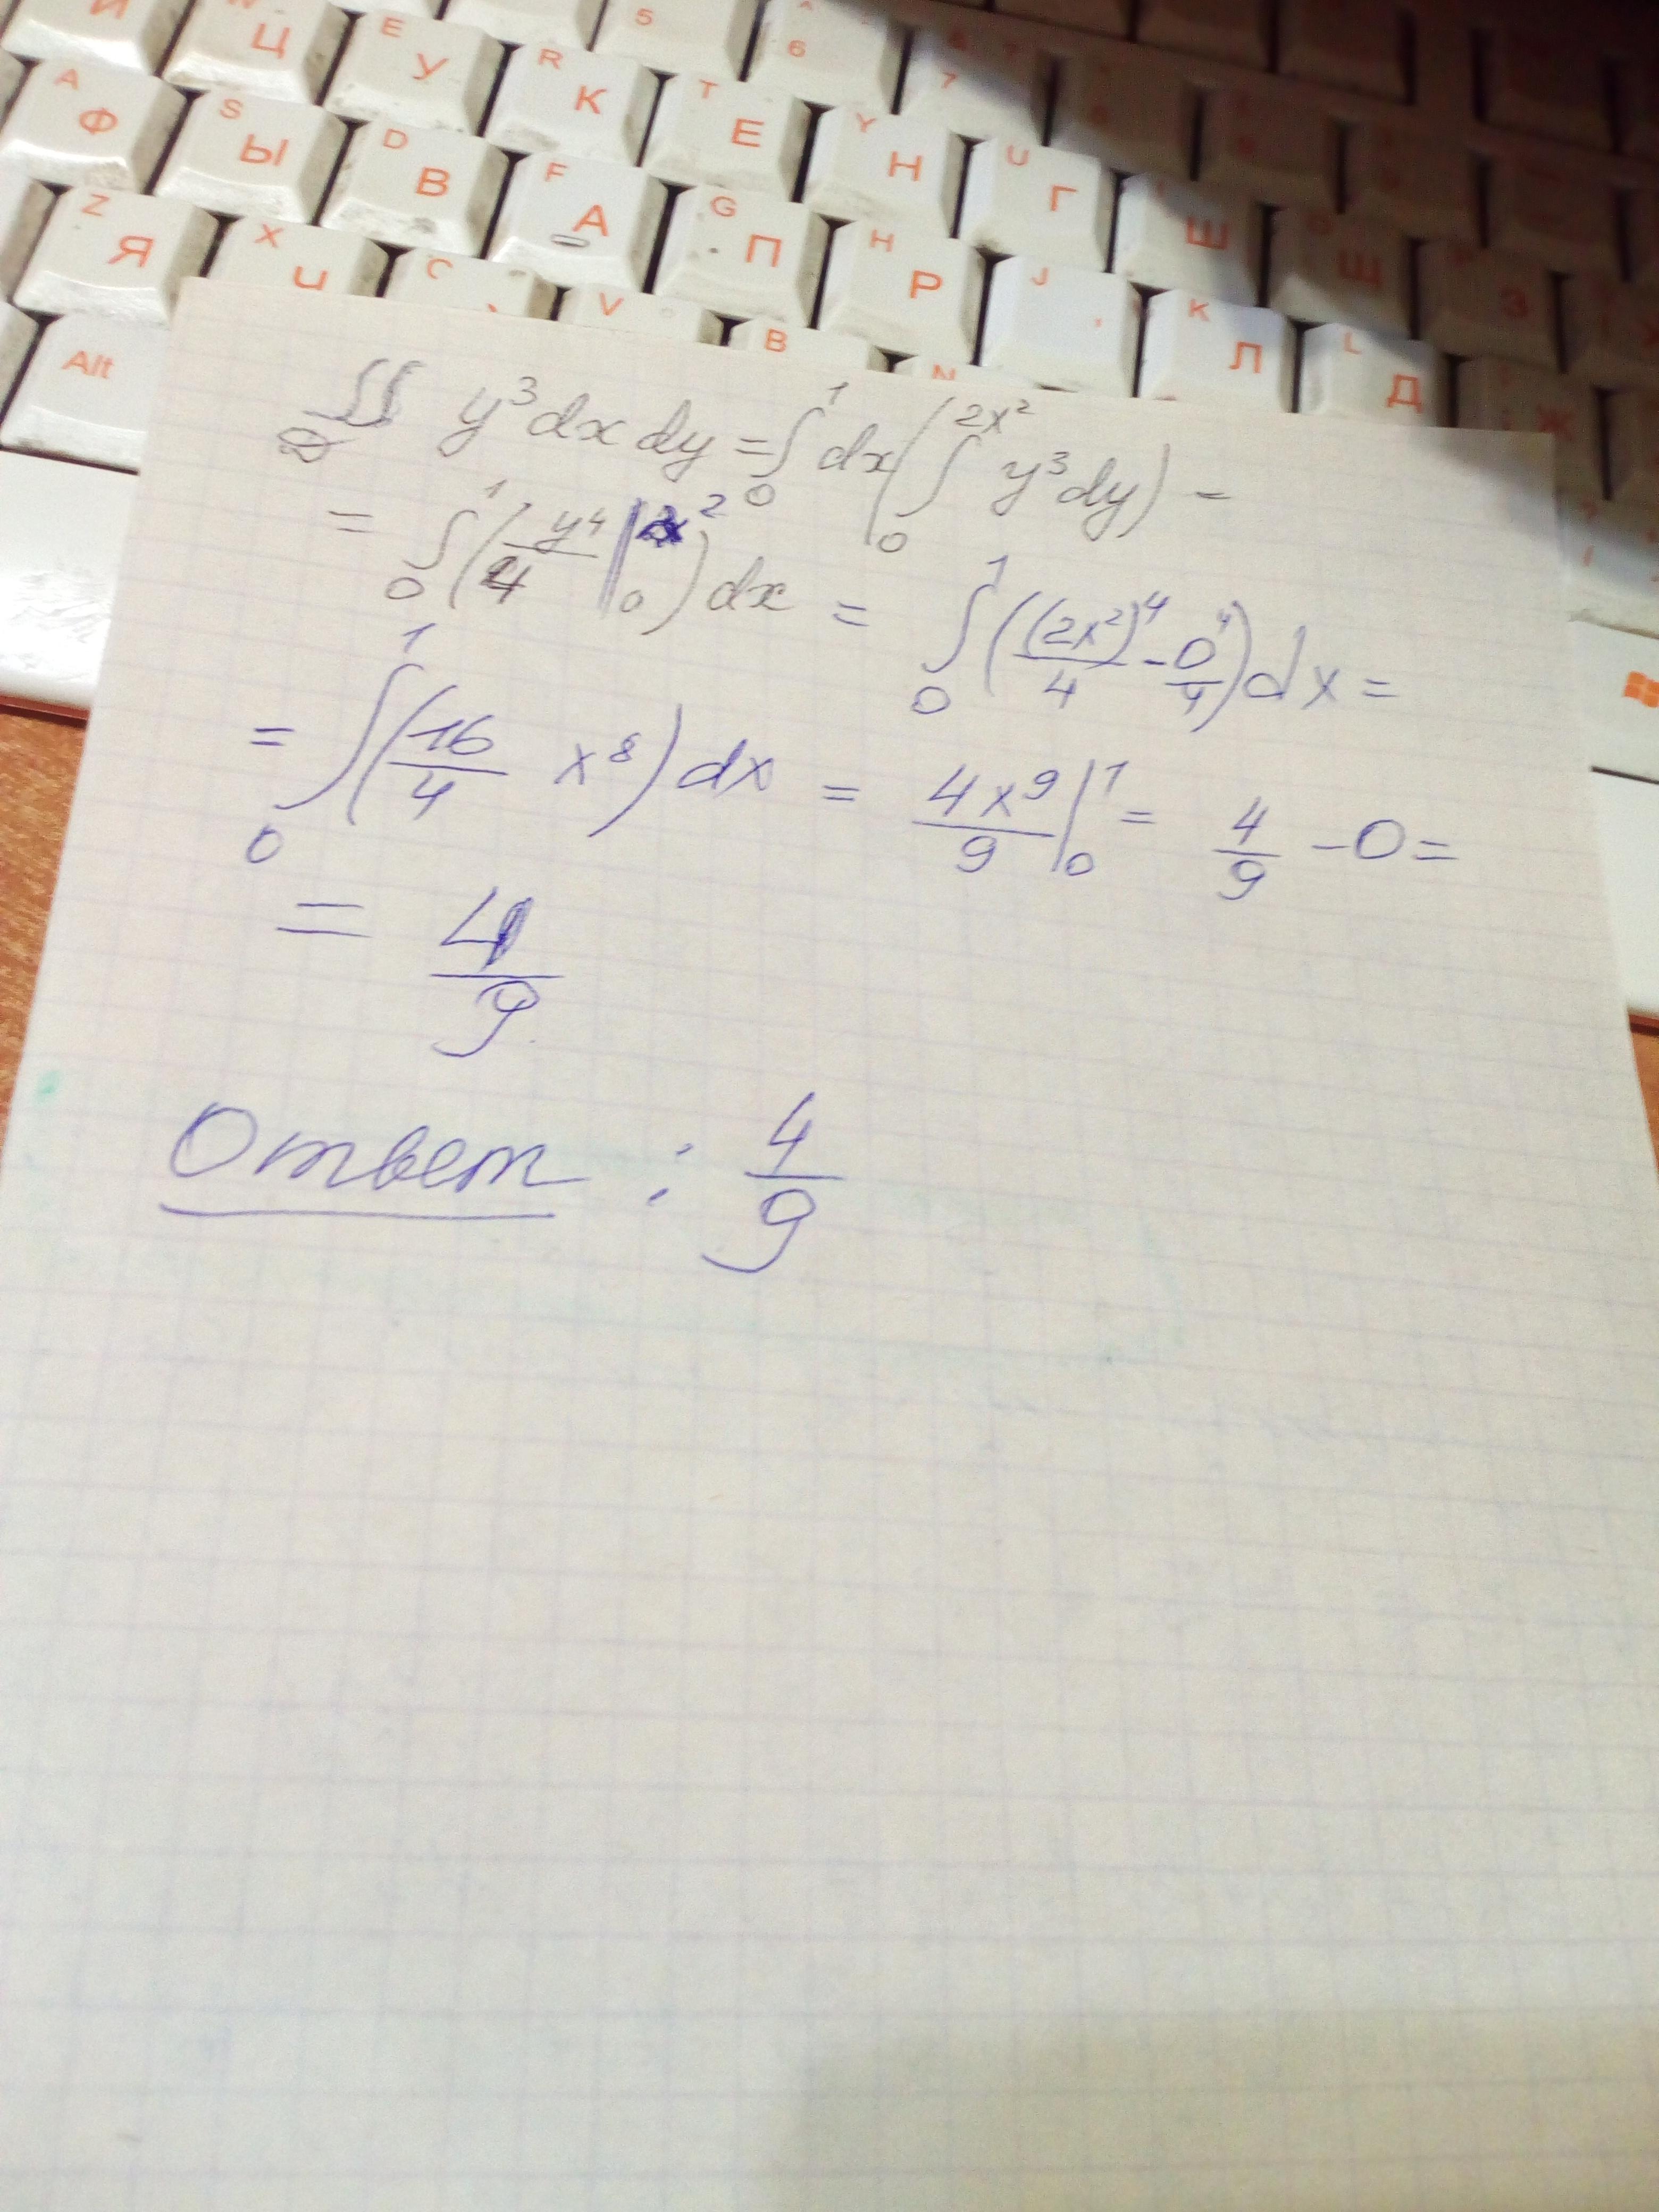 5 6 7
W Ц E У R К T Е Y Н U Г Ш Щ З
A Ф S Ы D В F А G П H Р J K Л L Д Ж
Z Я X Ч C V B N
Alt
∬ y³dx dy = ∫₀¹ dx(∫₀^{2x²} y³dy) =
= ∫₀¹ (y⁴/4 |₀ ²) dx = ∫₀¹ ((2x²)⁴/4 - 0⁴/4) dx =
= ∫₀¹ (16/4 x⁸) dx = 4x⁹/9 |₀¹ = 4/9 - 0 =
= 4/9
Ответ : 4/9